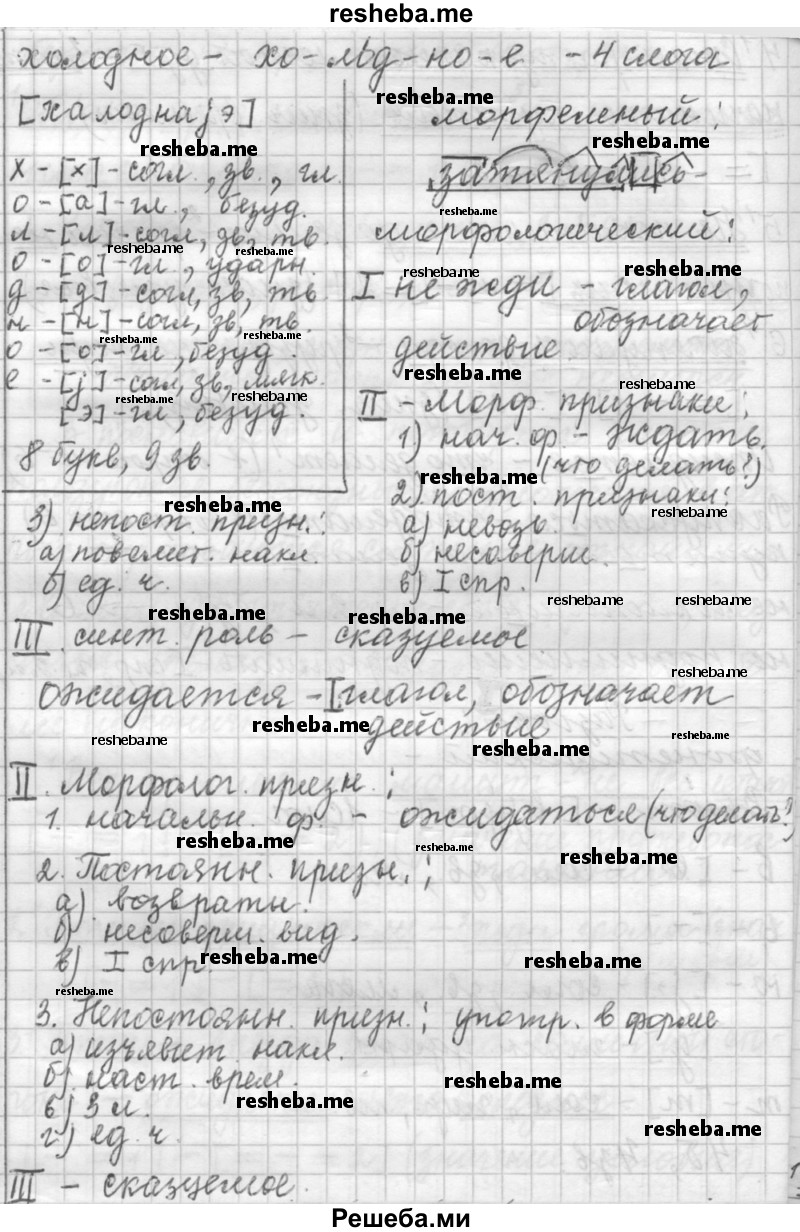 resheba.me
холодное - хо-лод-но-е - 4 слога
[халоднаjэ]
х - [х] - согл., зв., гл.
о - [а] - гл., безуд.
л - [л] - согл, зв, тв.
о - [о] - гл., ударн.
д - [д] - согл, зв, тв.
н - [н] - согл, зв, тв.
о - [о] - гл, безуд.
е - [j] - согл, зв, мягк.
[э] - гл, безуд.
8 букв, 9 зв.
морфемный:
затянулись -
морфологический:
I не жди - глагол,
обозначает
действие
II - Морф. признаки:
1) нач. ф. - Ждать.
(что делать?)
2) пост. признаки:
а) невозв.
б) несоверш.
в) I спр.
3) непост. призн.:
а) повелит. накл.
б) ед. ч.
III. синт. роль - сказуемое
ожидается - I глагол, обозначает
действие
II. Морфолог. призн.:
1. начальн. ф. - ожидаться (что делать?)
2. Постоянн. призн.:
а) возвратн.
б) несоверш. вид.
в) I спр.
3. Непостоянн. призн.: употр. в форме
а) изъявит. накл.
б) наст. врем.
в) 3 л.
г) ед. ч.
III - сказуемое.
Решеба.ми